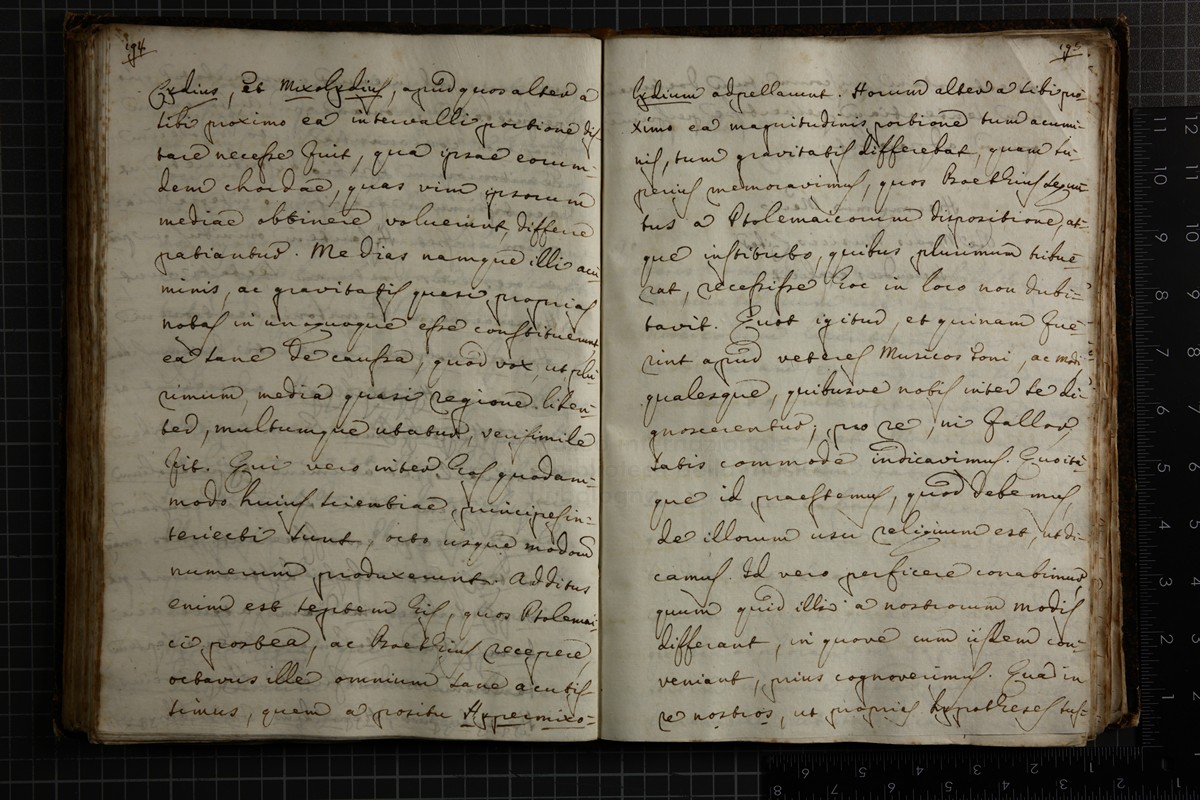 194
Lydius, et Mixolydius, apud quos alter a
sibi proximo ea intervalli portione dis
tare necesse fuit, qua ipsae eorum-
dem chordae, quas vim ipsorum
mediae obtinere voluerunt, differre
patiantur. Medias namque illi acu
minis, ac gravitatis quasi proprias
notas in unoquoque esse constituerunt
ea sane de caussa, quod vox, ut plu
rimum, media quasi regione liben-
ter, multumque utatur, verisimile
fit. Qui vero inter hos quodam-
modo huius scientiae principes in-
teriecti sunt, octo usque modorum
numerum produxerunt. Additus
enim est septem his, quos Ptolemai
ci postea, ac Boethius recepere
octavus ille omnium sane acutis
simus, quem a positu Hypermixo-
195
lydium adpellarunt. Horum alter a sibi pro
ximo ea magnitudinis portione tum acumi-
nis, tum gravitatis differebat, quam su-
perius memoravimus, quos Boethius secu
tus a Ptolemaicorum dispositione, at-
que instituto, quibus plurimum tribue
rat, recessisse hoc in loco non dubi-
tavit. Quot igitur, et quinam fue
rint apud veteres Musicos toni, ac modi
qualesque, quibusve nobis inter se di
gnoscerentur; pro re, ni fallor,
satis commode indicavimus. Quoti
que id praestemus, quod debemus,
de illorum usu reliquum est, ut di
camus. Id vero perficere conabimur
quum quid illi a nostrorum modis
differant, in quove cum iisdem con-
veniant, prius cognoverimus. Qua in
re nostros, ut proprias hypotheses sus-